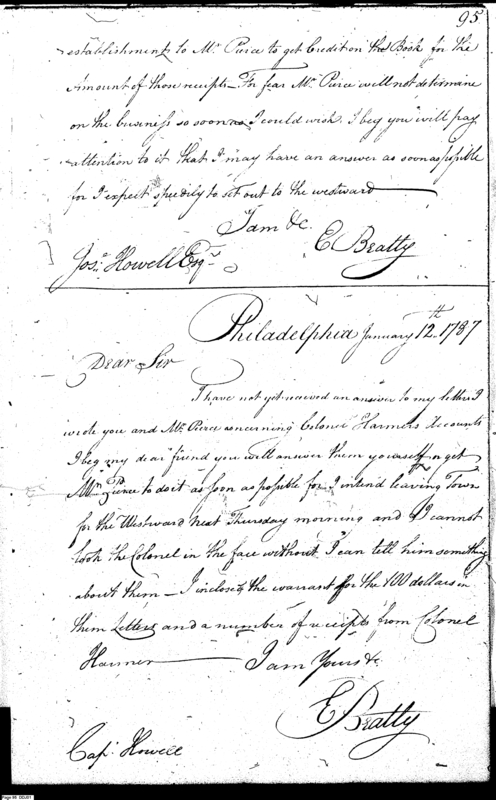 95
establishment to Mr Pierce to get Credit on the Book for the
Amount of those receipts — For fear Mr Pierce will not determine
on the business so soon as I could wish. I beg you will pay
attention to it that I may have an answer as soon as possible
for I expect speedily to set out to the westward
I am &c
E Beatty
Jos. Howell Esqr
Philadelphia January 12th 1787
Dear Sir
I have not yet received an answer to my letters I
wrote you and Mr Pierce concerning Colonel Harmers Accounts
I beg my dear friend you will answer them yourself or get
Mr Pierce to do it as soon as possible for I intend leaving Town
for the Westward next Thursday morning and I cannot
look the Colonel in the face without I can tell him something
about them — I inclosed the warrant for the 400 dollars in
them Letters and a number of receipts from Colonel
Harmer — I am Yours &c
E Beatty
Capt. Howell
Page 95